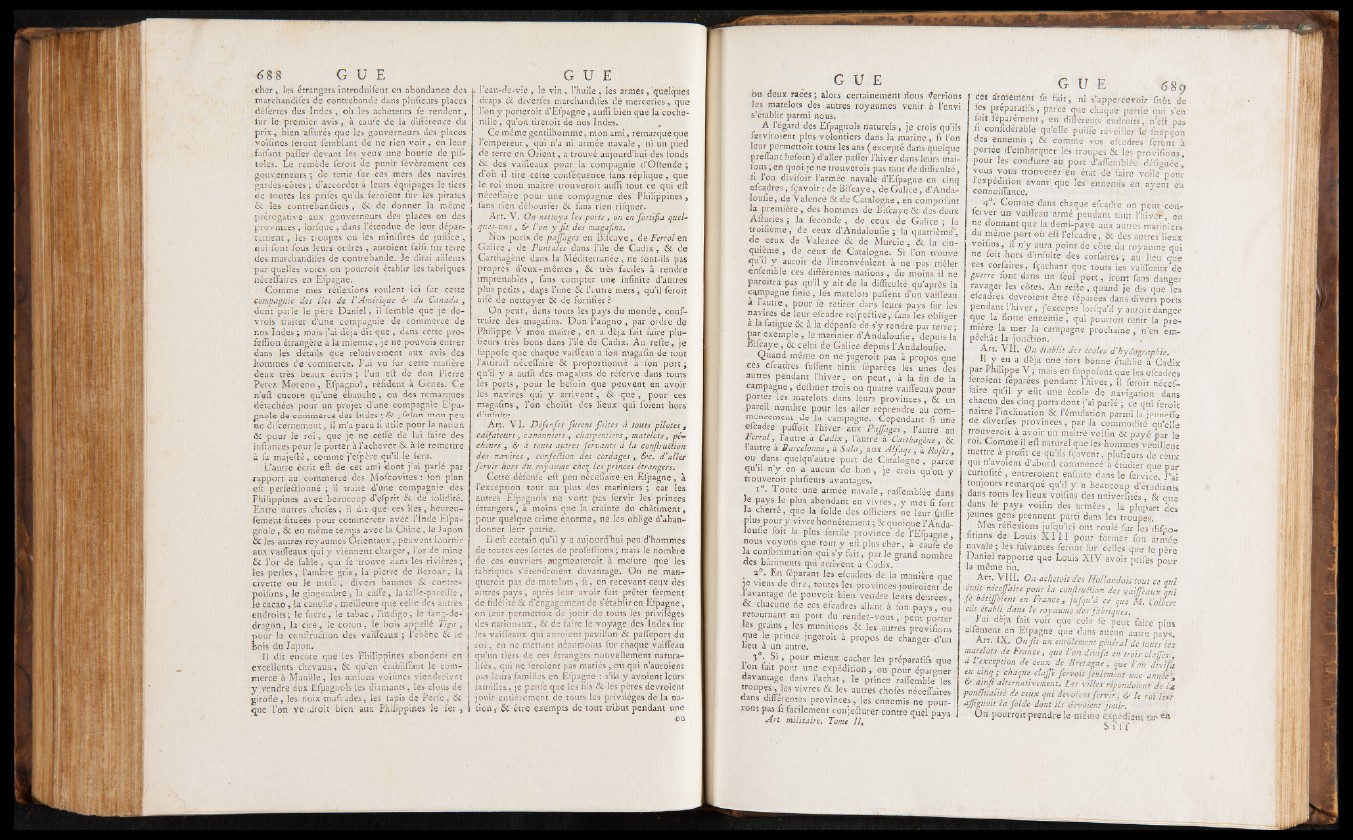 688 G U E
cher, les étrangers introduisent en abondance des
marchandises de contrebande dans plusieurs places
désertes des Indes, où les acheteurs se rendent,
sur le premier avis, à cause de la différence du
prix, bien assurés que les gouverneurs des places
voisines feront semblant de ne rien voir, en leur
faisant passer devant les yeux une bourse de pis-
toles. Le remède seroit de punir sévèrement ces
gouverneurs; de tenir sur ces mers des navires
gardes-côtes; d'accorder à leurs équipages le tiers
de toutes les prises qu'ils feroient sur les pirates
& les contrebandiers, & de donner la même
prérogative aux gouverneurs des places ou des
provinces, lorsque, dans l'étendue de leur dépar-
tement, les troupes ou les ministres de justice,
qui sont sous leurs ordres, auroient saisi sur terre
des marchandises de contrebande. Je dirai ailleurs
par quelles voies on pourroit établir les fabriques
nécessaires en Espagne.
Comme mes réflexions roulent ici sur cette
compagnie des îles de l'Amérique & du Canada,
dont parle le père Daniel, il semble que je de-
vrois traiter d'une compagnie de commerce de
nos Indes; mais j'ai déja dit que, dans cette pro-
fession étrangère à la mienne, je ne pouvois entrer
dans les détails que relativement aux avis des
hommes de commerce. J'ai vu sur cette matière
deux très beaux écrits; l'un est de don Pierre
Perez Moreno, Espagnol, résident à Gênes. Ce
n'est encore qu'une ébauche, ou des remarques
détachées pour un projet d'une compagnie Espa-
gnole de commerce des Indes; & selon mon peu
de discernement, il m'a paru si utile pour la nation
& pour le roi, que je ne cesse de lui faire des
instances pour le porter à l'achever & à le remettre
à sa majesté, comme j'espère qu'il le fera.
L'autre écrit est de cet ami dont j'ai parlé par
rapport au commerce des Moscovites: son plan
est perfectionné; il traite d'une compagnie des
Philippines avec beaucoup d'esprit & de solidité.
Entre autres choses, il dit que ces îles, heureu-
sement situées pour commercer avec l'Inde Espa-
gnole, & en même temps avec la Chine, le Japon
& les autres royaumes Orientaux, peuvent fournir
aux vaisseaux qui y viennent charger, l'or de mine
& l'or de sable, qui se trouve dans les rivières;
les perles, l'ambre gris, la pierre de Bezoar, la
civette ou le musc, divers baumes & contre-
poisons, le gingembre, la casse, la salse-pareille,
le cacao, la canelle, meilleure que celle des autres
endroits; le sucre, le tabac, l'indigo, le sang-de-
dragon, la cire, le coton, le bois appellé Tigé,
pour la construction des vaisseaux; l'ébène & le
bois du Japon.
Il dit encore que les Philippines abondent en
excellents chevaux, & qu'en établissant le com-
merce à Manille, les nations voisines viendroient
y vendre aux Espagnols les diamants, les clous de
girofle, les noix muscades, les tapis de Perse, &
que l'on vendroit bien aux Philippines le fer,
G U E
l'eau-de-vie, le vin, l'huile, les armes, quelques
draps & diverses marchandises de merceries, que
l'on y porteroit d'Espagne, aussi bien que la coche-
nille, qu'on tireroit de nos Indes.
Ce même gentilhomme, mon ami, remarque que
l'empereur, qui n'a ni armée navale, ni un pied
de terre en Orient, a trouvé aujourd'hui des fonds
& des vaisseaux pour la compagnie d'Ostende;
d'où il tire cette conséquence sans réplique, que
le roi mon maître trouveroit aussi tout ce qui est
nécessaire pour une compagnie des Philippines,
sans rien débourser & sans rien risquer.
Art. V. On nettoya les ports, on en fortifia quel-
ques-uns, & l'on y fit des magasins.
Nos ports de passages en Biscaye, de Ferrol en
Galice, de Puntales dans l'île de Cadix, & de
Carthagène dans la Méditerranée, ne sont-ils pas
propres d'eux-mêmes, & très faciles à rendre
imprenables, sans compter une infinité d'autres
plus petits, dans l'une & l'autre mers, qu'il seroit
aisé de nettoyer & de fortifier?
On peut, dans touts les pays du monde, cons-
truire des magasins. Don Patigno, par ordre de
Philippe V mon maître, en a déja fait faire plu-
sieurs très bons dans l'île de Cadix. Au reste, je
suppose que chaque vaisseau a son magasin de tout
l'attirail nécessaire & proportionné à son port;
qu'il y a aussi des magasins de réserve dans touts
les ports, pour le besoin que peuvent en avoir
les navires qui y arrivent, & que, pour ces
magasins, l'on choisit des lieux qui soient hors
d'insulte.
Art. VI. Défenses furent faites à touts pilotes,
calfateurs, canonniers, charpentiers, matelots, pê-
cheurs, & à touts autres servants à la construction
des navires, confection des cordages, &c. d'aller
servir hors du royaume chez les princes étrangers.
Cette défense est peu nécessaire en Espagne, à
l'exception tout au plus des mariniers; car les
autres Espagnols ne vont pas servir les princes
étrangers, à moins que la crainte du châtiment,
pour quelque crime énorme, ne les oblige d'aban-
donner leur patrie.
Il est certain qu'il y a aujourd'hui peu d'hommes
de toutes ces sortes de professions; mais le nombre
de ces ouvriers augmenteroit à mesure que les
fabriques s'étendroient davantage. On ne man-
queroit pas de matelots, si, en recevant ceux des
autres pays, après leur avoir fait prêter serment
de fidélité & d'engagement de s'établir en Espagne,
on leur permettoit de jouir de touts les privilèges
des nationaux, & de faire le voyage des Indes sur
les vaisseaux qui auroient pavillon & passeport du
roi, en ne mettant néanmoins sur chaque vaisseau
qu'un tiers de ces étrangers nouvellement natura-
lisés, qui ne seroient pas mariés, ou qui n'auroient
pas leurs familles en Espagne: s'ils y avoient leurs
familles, je pense que les fils & les pères devroient
jouir entièrement de touts les privilèges de la na-
tion, & être exempts de tout tribut pendant une
ou
G U E
ou deux races; alors certainement nous verrions
les matelots des autres royaumes venir à l'envi
s'établir parmi nous.
A l'égard des Espagnols naturels, je crois qu'ils
serviroient plus volontiers dans la marine, si l'on
leur permettoit touts les ans (excepté dans quelque
pressant besoin) d'aller passer l'hiver dans leurs mai-
sons; en quoi je ne trouverois pas tant de difficulté,
si l'on divisoit l'armée navale d'Espagne en cinq
escadres, sçavoir: de Biscaye, de Galice, d'Anda-
lousie, de Valence & de Catalogne, en composant
la première, des hommes de Biscaye & des deux
Asturies; la seconde, de ceux de Galice; la
troisième, de ceux d'Andalousie; la quatrième,
de ceux de Valence & de Murcie, & la cin-
quième, de ceux de Catalogne. Si l'on trouve
qu'il y auroit de l'inconvénient à ne pas mêler
ensemble ces différentes nations, du moins il ne
paroîtra pas qu'il y ait de la difficulté qu'après la
campagne finie, les matelots passent d'un vaisseau
à l'autre, pour se retirer dans leurs pays sur les
navires de leur escadre respective, sans les obliger
à la fatigue & à la dépense de s'y rendre par terre;
par exemple, le marinier d'Andalousie, depuis la
Biscaye, & celui de Galice depuis l'Andalousie.
Quand même on ne jugeroit pas à propos que
ces escadres fussent ainsi séparées les unes des
autres pendant l'hiver, on peut, à la fin de la
campagne, destiner trois ou quatre vaisseaux pour
porter les matelots dans leurs provinces, & un
pareil nombre pour les aller reprendre au com-
mencement de la campagne. Cependant si une
escadre passoit l'hiver aux Passages, l'autre au
Ferrol, l'autre à Cadix, l'autre à Carthagène, &
l'autre à Barcelonne, à Salo, aux Alfaqs, à Roses,
ou dans quelqu'autre port de Catalogne, parce
qu'il n'y en a aucun de bon, je crois qu'on y
trouveroit plusieurs avantages.
1°. Toute une armée navale, rassemblée dans
le pays le plus abondant en vivres, y met si fort
la cherté, que la solde des officiers ne leur suffit
plus pour y vivre honnêtement; & quoique l'Anda-
lousie soit la plus fertile province de l'Espagne,
nous voyons que tout y est plus cher, à cause de
la consommation qui s'y fait, par le grand nombre
des bâtiments qui arrivent à Cadix.
2°. En séparant les escadres de la manière que
je viens de dire, toutes les provinces jouiroient de
l'avantage de pouvoir bien vendre leurs denrées,
& chacune de ces escadres allant à son pays, ou
retournant au port du rendez-vous, peut porter
les grains, les munitions & les autres provisions
que le prince jugeroit à propos de changer d'un
lieu à un autre.
3°. Si, pour mieux cacher les préparatifs que
l'on fait pour une expédition, ou pour épargner
davantage dans l'achat, le prince rassemble les
troupes, les vivres & les autres choses nécessaires
dans différentes provinces, les ennemis ne pour-
ront pas si facilement conjecturer contre quel pays
Art militaire. Tome II.
G U E 689
cet armement se fait, ni s'appercevoir sitôt de
les préparatifs, parce que chaque partie qui s'en
fait séparément, en différens endroits, n'est pas
si considérable qu'elle puisse réveiller le soupçon
des ennemis; & comme vos escadres seront à
portée d'embarquer les troupes & les provisions,
pour les conduire au port d'assemblée désignée,
vous vous trouverez en état de faire voile pour
l'expédition avant que les ennemis en ayent eu
connoissance.
4°. Comme dans chaque escadre on peut con-
server un vaisseau armé pendant tout l'hiver, en
ne donnant que la demi-paye aux autres mariniers
du même port où est l'escadre, & des autres lieux
voisins, il n'y aura point de côte du royaume qui
ne soit hors d'insulte des corsaires; au lieu que
ces corsaires, sçachant que touts les vaisseaux de
guerre sont dans un seul port, iront sans danger
ravager les côtes. Au reste, quand je dis que les
escadres devroient être séparées dans divers ports
pendant l'hiver, j'excepte lorsqu'il y auroit danger
que la flotte ennemie, qui pourroit tenir la pre-
mière la mer la campagne prochaine, n'en em-
pêchât la jonction.
Art. VII. On établit des écoles d'hydographie.
Il y en a déja une fort bonne établie à Cadix
par Philippe V; mais en supposant que les escadres
seroient séparées pendant l'hiver, il seroit néces-
saire qu'il y eût une école de navigation dans
chacun des cinq ports dont j'ai parlé; ce qui feroit
naître l'inclination & l'émulation parmi la jeunesse
de diverses provinces, par la commodité qu'elle
trouveroit à avoir un maître voisin & payé par le
roi. Comme il est naturel que les hommes veuillent
mettre à profit ce qu'ils sçavent, plusieurs de ceux
qui n'avoient d'abord commencé à étudier que par
curiosité, entreroient ensuite dans le service. J'ai
toujours remarqué qu'il y a beaucoup d'étudiants
dans touts les lieux voisins des universités, & que
dans le pays voisin des armées, la plupart des
jeunes gens prennent parti dans les troupes.
Mes réflexions jusqu'ici ont roulé sur les dispo-
sitions de Louis XIII pour former son armée
navale; les suivantes seront sur celles que le père
Daniel rapporte que Louis XIV avoit prises pour
la même fin.
Art. VIII. On achetoit des Hollandois tout ce qui
étoit nécessaire pour la construction des vaisseaux qui
se bâtissoient en France, jusqu'à ce que M. Colbert
eût établi dans le royaume des fabriques.
J'ai déja fait voir que cela se peut faire plus
aisément en Espagne que dans aucun autre pays.
Art. IX. On fit un enrôlement général de touts les
matelots de France, que l'on divisa en trois classes,
à l'exception de ceux de Bretagne, que l'on divisa
en cinq; chaque classe servoit seulement une année,
& ainsi alternativement. Les villes répondoient de la
ponctualité de ceux qui devoient servir, & le roi leur
assignoit la solde dont ils devoient jouir.
On pourroit prendre le même expédient en
S s s s